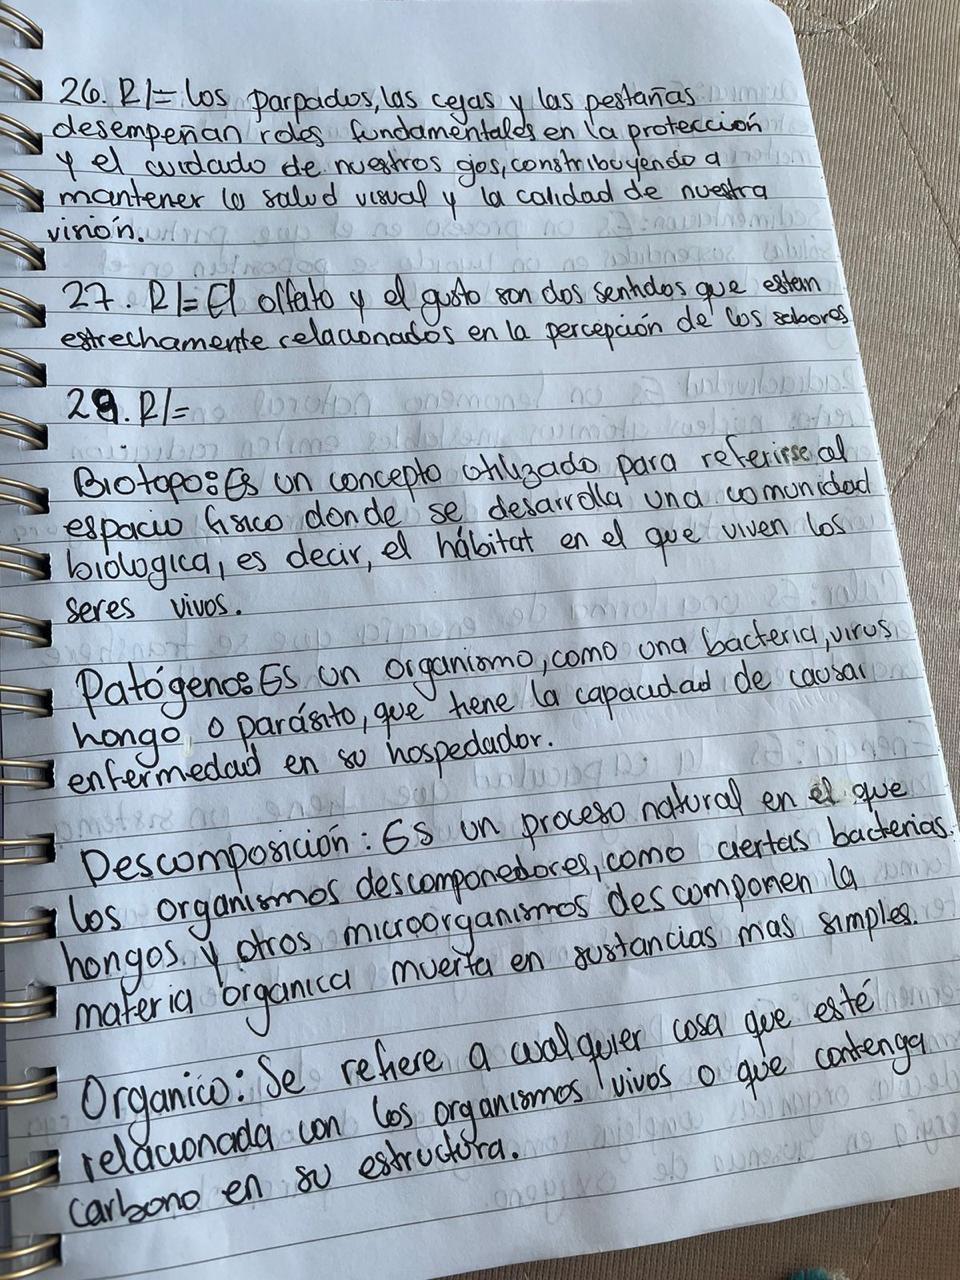 26. R/= Los parpados, las cejas y las pestañas
desempeñan roles fundamentales en la protección
y el cuidado de nuestros ojos, constribuyendo a
mantener la salud visual y la calidad de nuestra
visión.
27. R/= El olfato y el gusto son dos sentidos que estan
estrechamente relacionados en la percepción de los sabores
29. R/=
Biotopo: Es un concepto utilizado para referirse al
espacio fisico donde se desarrolla una comunidad
biologica, es decir, el hábitat en el que viven los
seres vivos.
Patógeno: Es un organismo, como una bacteria, virus
hongo o parásito, que tiene la capacidad de causar
enfermedad en su hospedador.
Descomposición: Es un proceso natural en el que
los organismos descomponedores, como ciertas bacterias.
hongos y otros microorganismos descomponen la
materia organica muerta en sustancias mas simples.
Organico: Se refiere a cualquier cosa que esté
relacionada con los organismos vivos o que contenga
carbono en su estructura.